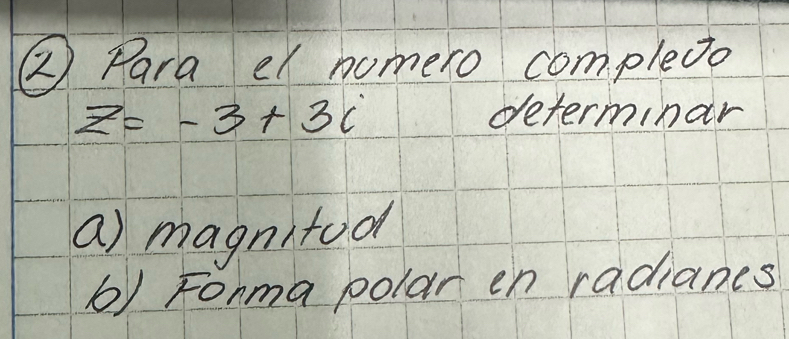 ② Para el numero complejo
z = -3 + 3i determinar
a) magnitud
b) Forma polar en radianes